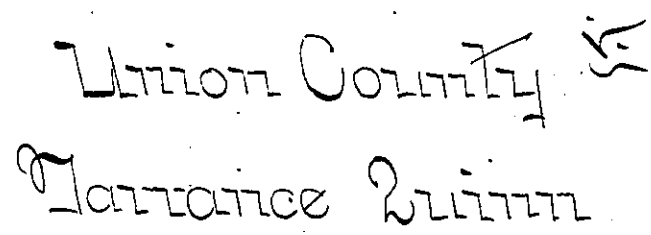 Union County
Tarrance Quinn